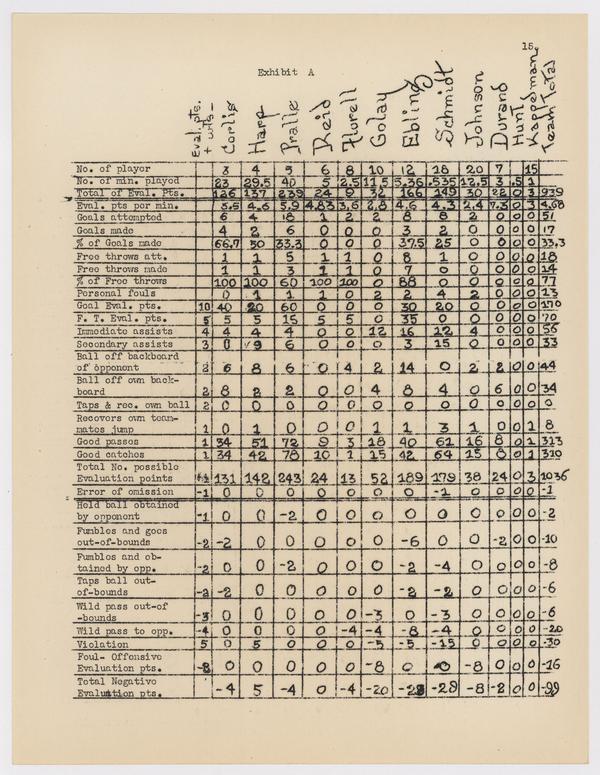 18.
Exhibit A
Eval. pts. + wts- Corlis Harp Pralle Reid Florell Golay Ebling Schmidt Johnson Durand Hunt Kappelman Team Total
No. of player 3 4 5 6 8 10 12 18 20 7 15
No. of min. played 23 29.5 40 5 2.5 11.5 5.36 .535 12.5 3 .5 1
Total of Eval. Pts. 126 137 239 24 9 32 166 149 30 22 0 3 939
Eval. pts per min. 5.5 4.6 5.9 4.83 3.6 2.8 4.6 4.3 2.4 7.3 0 3 4.68
Goals attempted 6 4 18 1 2 2 8 8 2 0 0 0 51
Goals made 4 2 6 0 0 0 3 2 0 0 0 0 17
% of Goals made 66.7 50 33.3 0 0 0 37.5 25 0 0 0 0 33.3
Free throws att. 1 1 5 1 1 0 8 1 0 0 0 0 18
Free throws made 1 1 3 1 1 0 7 0 0 0 0 0 14
% of Free throws 100 100 60 100 100 0 88 0 0 0 0 0 77
Personal fouls 0 1 1 1 0 2 2 4 2 0 0 0 13
Goal Eval. pts. 10 40 20 60 0 0 0 30 20 0 0 0 0 170
F. T. Eval. pts. 5 5 5 15 5 5 0 35 0 0 0 0 0 70
Immediate assists 4 4 4 4 0 0 12 16 12 4 0 0 0 56
Secondary assists 3 0 9 6 0 0 0 3 15 0 0 0 0 33
Ball off backboard
of opponent 2 6 8 6 0 4 2 14 0 2 2 0 0 44
Ball off own back-
board 2 8 2 2 0 0 4 8 4 0 6 0 0 34
Taps & rec. own ball 2 0 0 0 0 0 0 0 0 0 0 0 0 0
Recovers own team-
mates jump 1 0 1 0 0 0 1 1 3 1 0 0 1 8
Good passes 1 34 51 72 9 3 18 40 61 16 8 0 1 313
Good catches 1 34 42 78 10 1 15 42 64 15 8 0 1 310
Total No. possible
Evaluation points 131 142 243 24 13 52 189 179 38 24 0 3 1036
Error of omission -1 0 0 0 0 0 0 0 -1 0 0 0 0 -1
Held ball obtained
by opponent -1 0 0 -2 0 0 0 0 0 0 0 0 0 -2
Fumbles and goes
out-of-bounds -2 -2 0 0 0 0 0 -6 0 0 -2 0 0 -10
Fumbles and ob-
tained by opp. -2 0 0 -2 0 0 0 -2 -4 0 0 0 0 -8
Taps ball out-
of-bounds -2 -2 0 0 0 0 0 -2 -2 0 0 0 0 -6
Wild pass out-of
-bounds -3 0 0 0 0 0 -3 0 -3 0 0 0 0 -6
Wild pass to opp. -4 0 0 0 0 -4 -4 -8 -4 0 0 0 0 -20
Violation 5 0 5 0 0 0 -5 -5 -15 0 0 0 0 -30
Foul- Offensive
Evaluation pts. -8 0 0 0 0 0 -8 0 0 -8 0 0 0 -16
Total Negative
Evaluation pts. -4 5 -4 0 -4 -20 -23 -29 -8 -2 0 0 -99